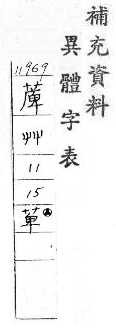 補充資料
異體字表
11969
艸
11
15